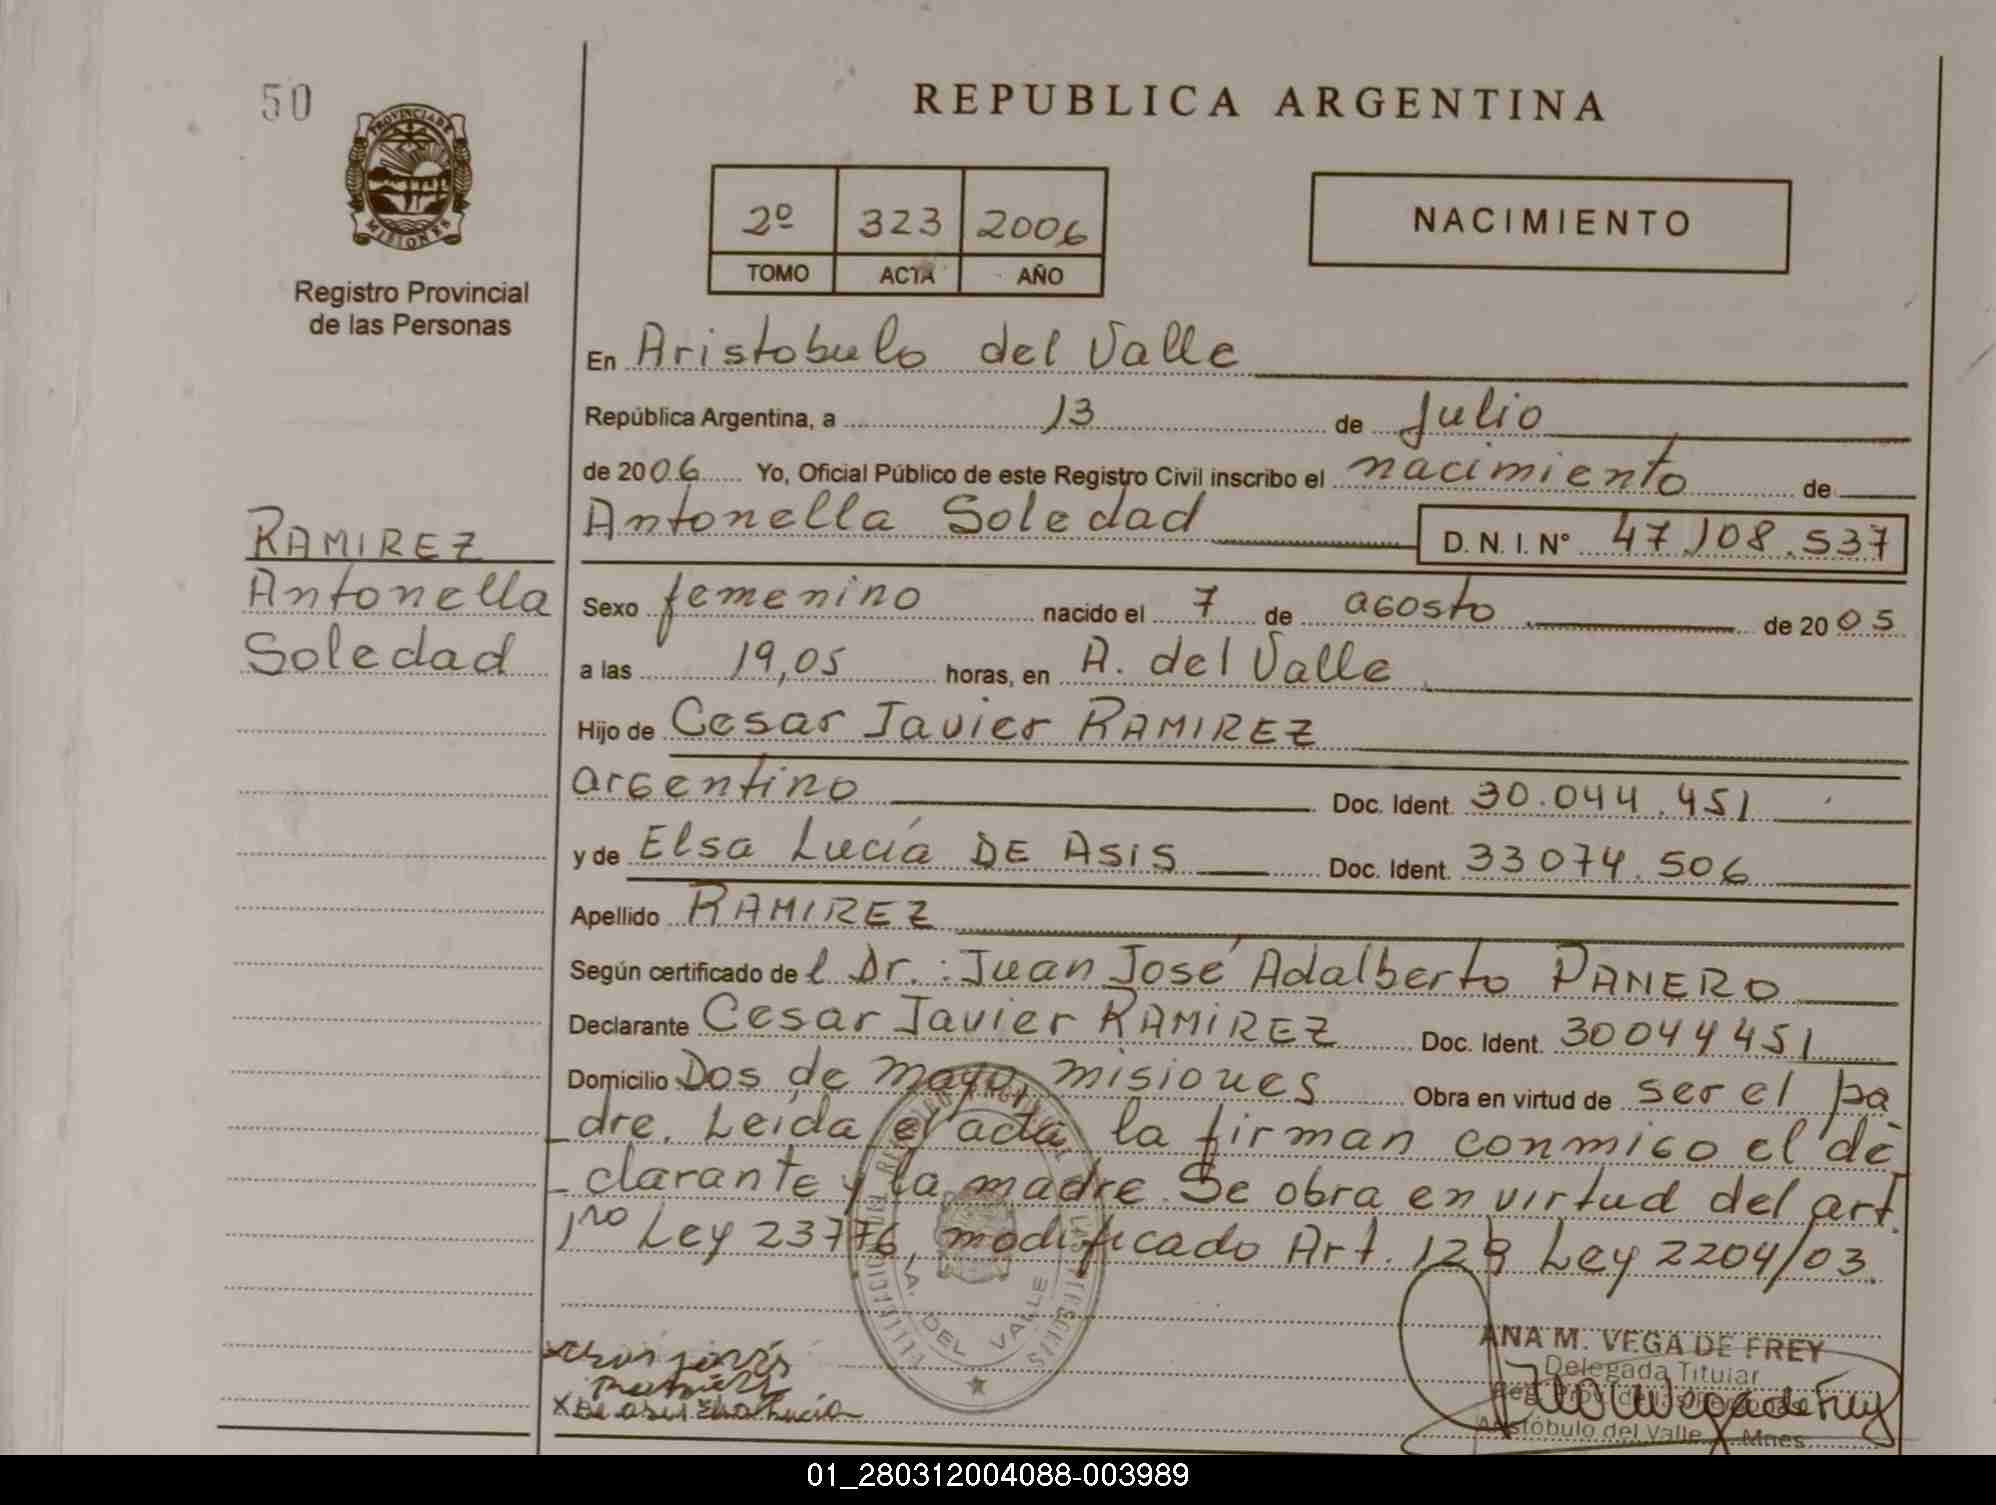 50
PROVINCIA DE
MISIONES
Registro Provincial
de las Personas
REPUBLICA ARGENTINA
2º 323 2006
TOMO ACTA AÑO
NACIMIENTO
En Aristobulo del Valle
República Argentina, a 13 de Julio
de 2006 Yo, Oficial Público de este Registro Civil inscribo el nacimiento de
Antonella Soledad D. N. I. Nº 47.108.537
RAMIREZ
Antonella
Soledad
Sexo femenino nacido el 7 de agosto de 2005
a las 19,05 horas, en A. del Valle
Hijo de Cesar Javier RAMIREZ
argentino Doc. Ident. 30.044.451
y de Elsa Lucía DE ASIS Doc. Ident. 33074.506
Apellido RAMIREZ
Según certificado de l Dr.: Juan José Adalberto PANERO
Declarante Cesar Javier RAMIREZ Doc. Ident. 30044451
Domicilio Dos de mayo, misiones Obra en virtud de ser el pa
dre. Leida el acta, la firman conmigo el de
clarante y la madre. Se obra en virtud del art.
1ro Ley 23776, modificado Art. 129 Ley 2204/03.
A. DEL VALLE
ANA M. VEGA DE FREY
Delegada Titular
Aristóbulo del Valle Mnes.
De asis Elsa Lucia
01_280312004088-003989